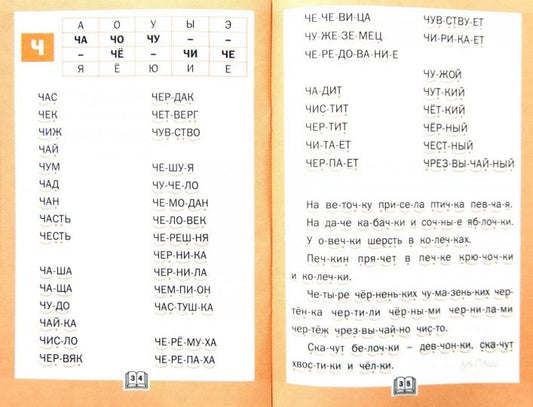 А О У Ы Э
Ч ЧА ЧО ЧУ – –
– ЧЁ – ЧИ ЧЕ
Я Ё Ю И Е
ЧАС
ЧЕК
ЧИЖ
ЧАЙ
ЧУМ
ЧАД
ЧАН
ЧАСТЬ
ЧЕСТЬ
ЧА-ША
ЧА-ЩА
ЧУ-ДО
ЧАЙ-КА
ЧИС-ЛО
ЧЕР-ВЯК
ЧЕР-ДАК
ЧЕТ-ВЕРГ
ЧУВ-СТВО
ЧЕ-ШУ-Я
ЧУ-ЧЕ-ЛО
ЧЕ-МО-ДАН
ЧЕ-ЛО-ВЕК
ЧЕ-РЕШ-НЯ
ЧЕР-НИ-КА
ЧЕР-НИ-ЛА
ЧЕМ-ПИ-ОН
ЧАС-ТУШ-КА
ЧЕ-РЁ-МУ-ХА
ЧЕ-РЕ-ПА-ХА
34
ЧЕ-ЧЕ-ВИ-ЦА
ЧУ-ЖЕ-ЗЕ-МЕЦ
ЧЕ-РЕ-ДО-ВА-НИ-Е
ЧА-ДИТ
ЧИС-ТИТ
ЧЕР-ТИТ
ЧИ-ТА-ЕТ
ЧЕР-ПА-ЕТ
ЧУВ-СТВУ-ЕТ
ЧИ-РИ-КА-ЕТ
ЧУ-ЖОЙ
ЧУТ-КИЙ
ЧЁТ-КИЙ
ЧЁР-НЫЙ
ЧЕСТ-НЫЙ
ЧРЕЗ-ВЫ-ЧАЙ-НЫЙ
На ве-точ-ку при-се-ла птич-ка пев-ча-я.
На да-че ка-бач-ки и соч-ны-е яб-лоч-ки.
У о-веч-ки шерсть в ко-леч-ках.
Печ-кин пря-чет в печ-ке крю-чоч-ки
и ко-леч-ки.
Че-ты-ре чёр-нень-ких чу-ма-зень-ких чер-
тён-ка чер-ти-ли чёр-ны-ми чер-ни-ла-ми
чер-тёж чрез-вы-чай-но чис-то.
Ска-чут бе-лоч-ки – дев-чон-ки, ска-чут
хвос-ти-ки и чёл-ки.
35